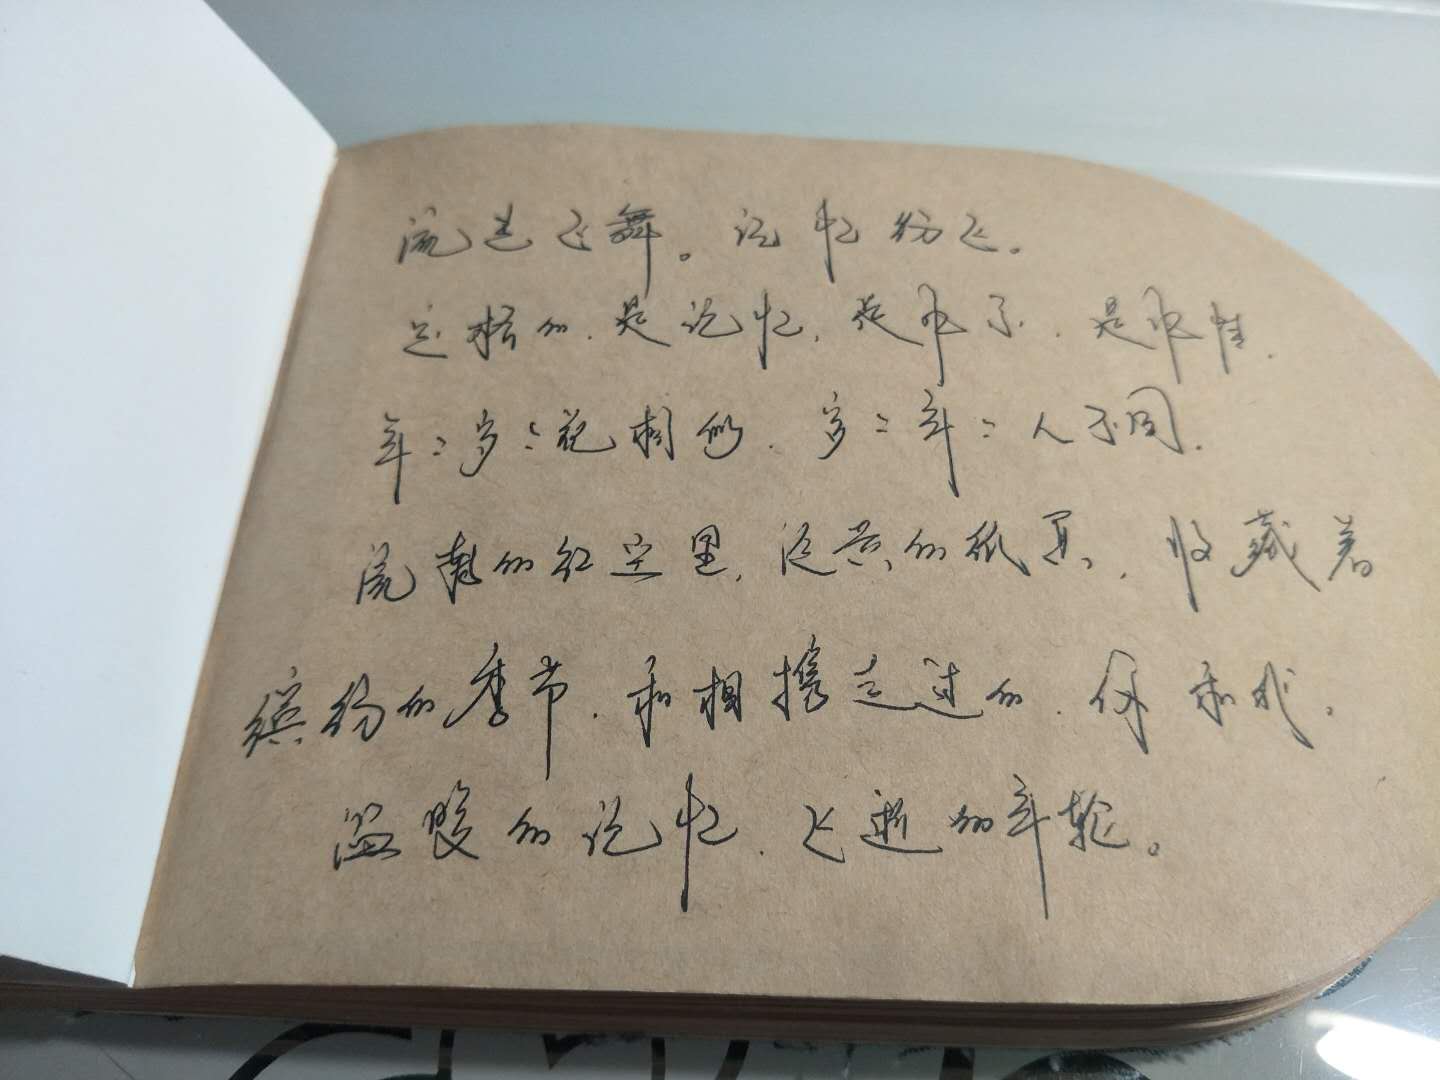 流光飞舞。记忆纷飞。
定格的.是记忆.是永了.是永恒.
年:岁:花相似.岁:年:人不同.
流动的红尘里.泛黄的纸页.收藏着
缤纷的季节.和相携走过的.你和我.
温暖的记忆.飞逝的年轮。